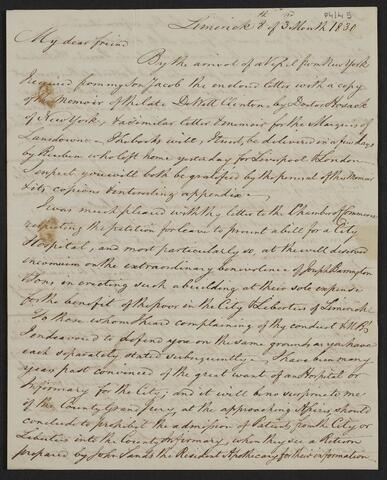 P4/14 5
Limerick 8th of 3 Month 1830
My dear friend
By the arrival of a Ship from New York
I received from my son Jacob the enclosed letter with a copy
of the Memoir of the late De Witt Clenton, by Doctor Hosack
of New York, & a similar letter & memoir for the Marquis of
Lansdowne — The books will, I trust, be delivered in a few days
by Reuben who left home yesterday for Liverpool & London
I expect you will both be gratified by the perusal of the Memoir
& its copious & interesting appendix —
I was much pleased with thy letter to the Chamber of Commerce
respecting the petition for leave to present a bill for a City
Hospital, and most particularly so, at the well deserved
encomium on the extraordinary benevolence of Joseph Barrington
& Sons, in erecting such a building at their sole expense
for the benefit of the poor in the City & Liberties of Limerick
To those whom I heard complaining of thy conduct &
I endeavored to defend you on the same grounds as you have
each separately stated subsequently — I have been many
years past convinced of the great want of an Hospital or
Infirmary for the City; and it will be no surprise to me
if the County Grand Jury, at the approaching Assizes, should
conclude to prohibit the admission of Patients from the City or
Liberties into the County Infirmary, when they see a Return
prepared by John Sands the Resident Apothecary for their information